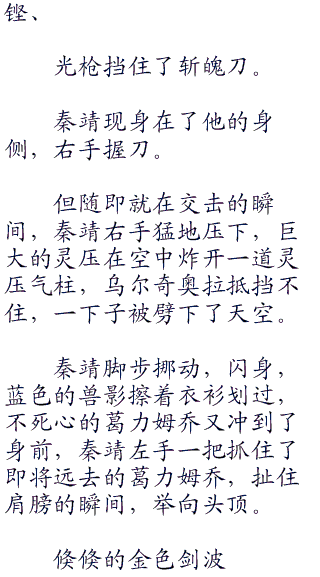 铿、
光枪挡住了斩魄刀。
秦靖现身在了他的身
侧，右手握刀。
但随即就在交击的瞬
间，秦靖右手猛地压下，巨
大的灵压在空中炸开一道灵
压气柱，乌尔奇奥拉抵挡不
住，一下子被劈下了天空。
秦靖脚步挪动，闪身，
蓝色的兽影擦着衣衫划过，
不死心的葛力姆乔又冲到了
身前，秦靖左手一把抓住了
即将远去的葛力姆乔，扯住
肩膀的瞬间，举向头顶。
倏倏的金色剑波